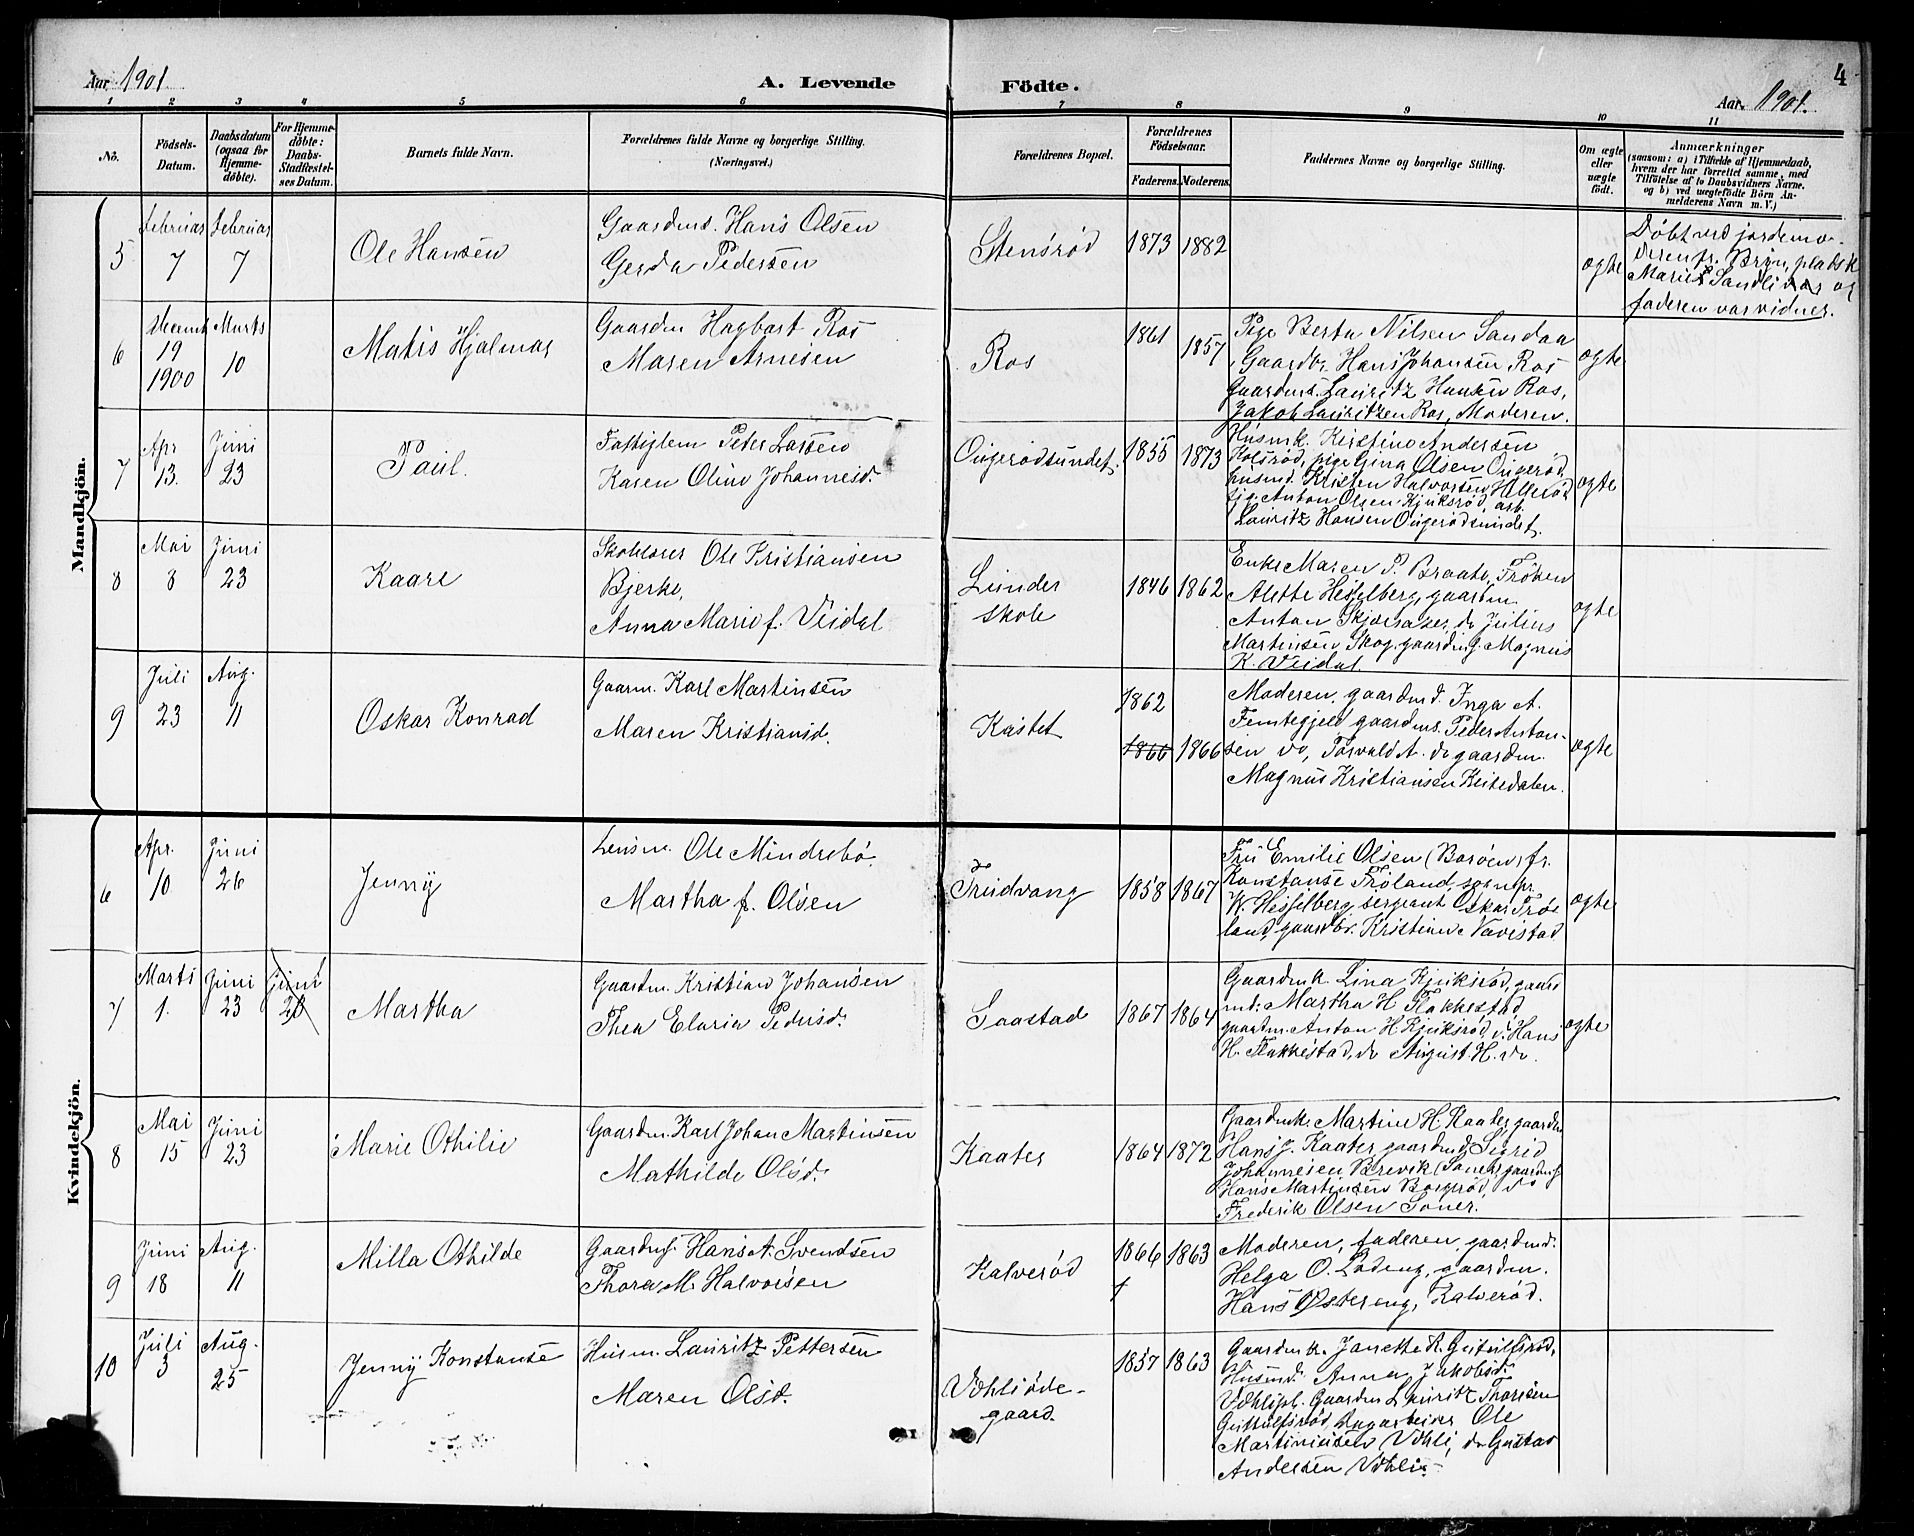 Aar 1901.
A. Levende
Födte.
Aar. 1901.
4
1 2 3 4 5 6 7 8 9 10 11
No.
Födsels-
Datum.
Daabsdatum
(ogsaa for
Hjemme-
døbte).
For Hjemme-
døbte:
Daabs-
Stadfæstel-
ses Datum.
Barnets fulde Navn.
Forældrenes fulde Navne og borgerlige Stilling.
(Næringsvei.)
Forældrenes Bopæl.
Forældrenes
Födselsaar.
Faderens. Moderens.
Faddernes Navne og borgerlige Stilling.
Om ægte
eller
uægte
født.
Anmærkninger
(saasom: a) i Tilfælde af Hjemmedaab,
hvem der har forrettet samme, med
Tilføielse af to Daabsvidners Navne,
og b) ved uægtefødte Börn An-
melderens Navn m. V.)
Mandkjön.
5
Februar
7
Februar
7
Ole Hansen
Gaardm. Hans Olsen
Gerda Pedersen
Stensrød
1873
1882
ægte
Døbt ved jordemo-
deren fr. Bryn, pladsk
Marie Sandli og
faderen var vidner.
6
19
1900
Marts
10
Matis Hjalmar
Gaardm Hagbart Ros
Maren Arnesen
Ros
1861
1857
Pige Berta Nilsen Sandaa
Gaardbr. Hans Johansen Ros
Gaardms. Lauritz Hansen Ros,
Jakob Lauritzen Ros, Moderen.
ægte
7
Apr
13.
Juni
23
Paul.
Fattiglem Peter Larsen
Karen Oline Johannesd.
Ougerødsundet.
1855
1873
Husmk. Kristine Andersen
Kolsrød, pige Gina Olsen Ougerød,
husmd. Kristen Halvorsen Hellerød
Anton Olsen Kjuksrød, arb.
Lauritz Hansen Ougerødsundet.
ægte
8
Mai
8
Juni
23
Kaare
Skolelærer Ole Kristiansen
Bjerke,
Anna Marie f. Veidal
Lunder
skole
1846
1862
Enke Maren P. Braate, Frøken
Alette Hesselberg, gaardm.
Anton Skjørsaker, do Julius
Martinsen Skog, gaardmg. Magnus
K. Veidal.
ægte
9
Juli
23
Aug.
11
Oskar Konrad
Gaarm. Karl Martinsen
Maren Kristiansd.
Kastet
1862
1866
1866
Moderen, gaardmd. Inga A.
Femtegjeld gaardms. Peder Anton-
sen do, Torvald A. do gaardm.
Magnus Kristiansen Keisedalen.
ægte
Kvindekjön.
6
Apr.
10.
Juni
26
Jenny
Lensm. Ole Mindrebø.
Martha f. Olsen
Trudvang
1858
1867
Fru Emilie Olsen (Borøen) fr.
Konstanse Frøland, sognpr.
W. Hesselberg, sergeant Oskar Frøi
land, gaardbr. Kristian Nævestad
ægte
7
Marts
1.
Juni
23
Juni
20
Martha
Gaardm. Kristian Johansen
Thea Elaria Pedersd.
Saastad
1867
1864
Gaardmk. Lina Kjuksrød, gaard
md. Martha H. Flakkestad
gaardm. Anton H. Kjuksrød, Hans
H. Flakkestad, do August H. do.
ægte
8
Mai
15
Juni
23
Marie Othilie
Gaardm. Karl Johan Martinsen
Mathilde Olsd.
Kaater
1864
1872
Gaardmk. Martine H. Kaater, gaardm.
Hans J. Kaater, gaardmd Sigrid
Johannesen Brevik (Saner) gaardms
Hans Martinsen do
Frederik Olsen Soner.
9
Juni
18
Aug.
11
Milla Othilde
Gaardms. Hans A. Svendsen
Thora M. Halvorsen
Kalverød
1866
1863
Moderen, faderen, gaardmd.
Helga O. Lodeng, gaardm.
Hans Østereng, Kalverød.
10
Juli
3
Aug.
25
Jenny Konstanse
Husm. Lauritz Pettersen
Maren Olsd.
Vøhliøde-
gaard.
1857
1863
Gaardmk. Janette R. Guttulfsrød,
Husmd. Anna Jakobsd.
Vøhlipl. Gaardm Lauritz Thoresen
Guttulfsrød, Dagarbeider Ole
Martiniusen Vøhli, do Gustav
Andersen Vøhli.